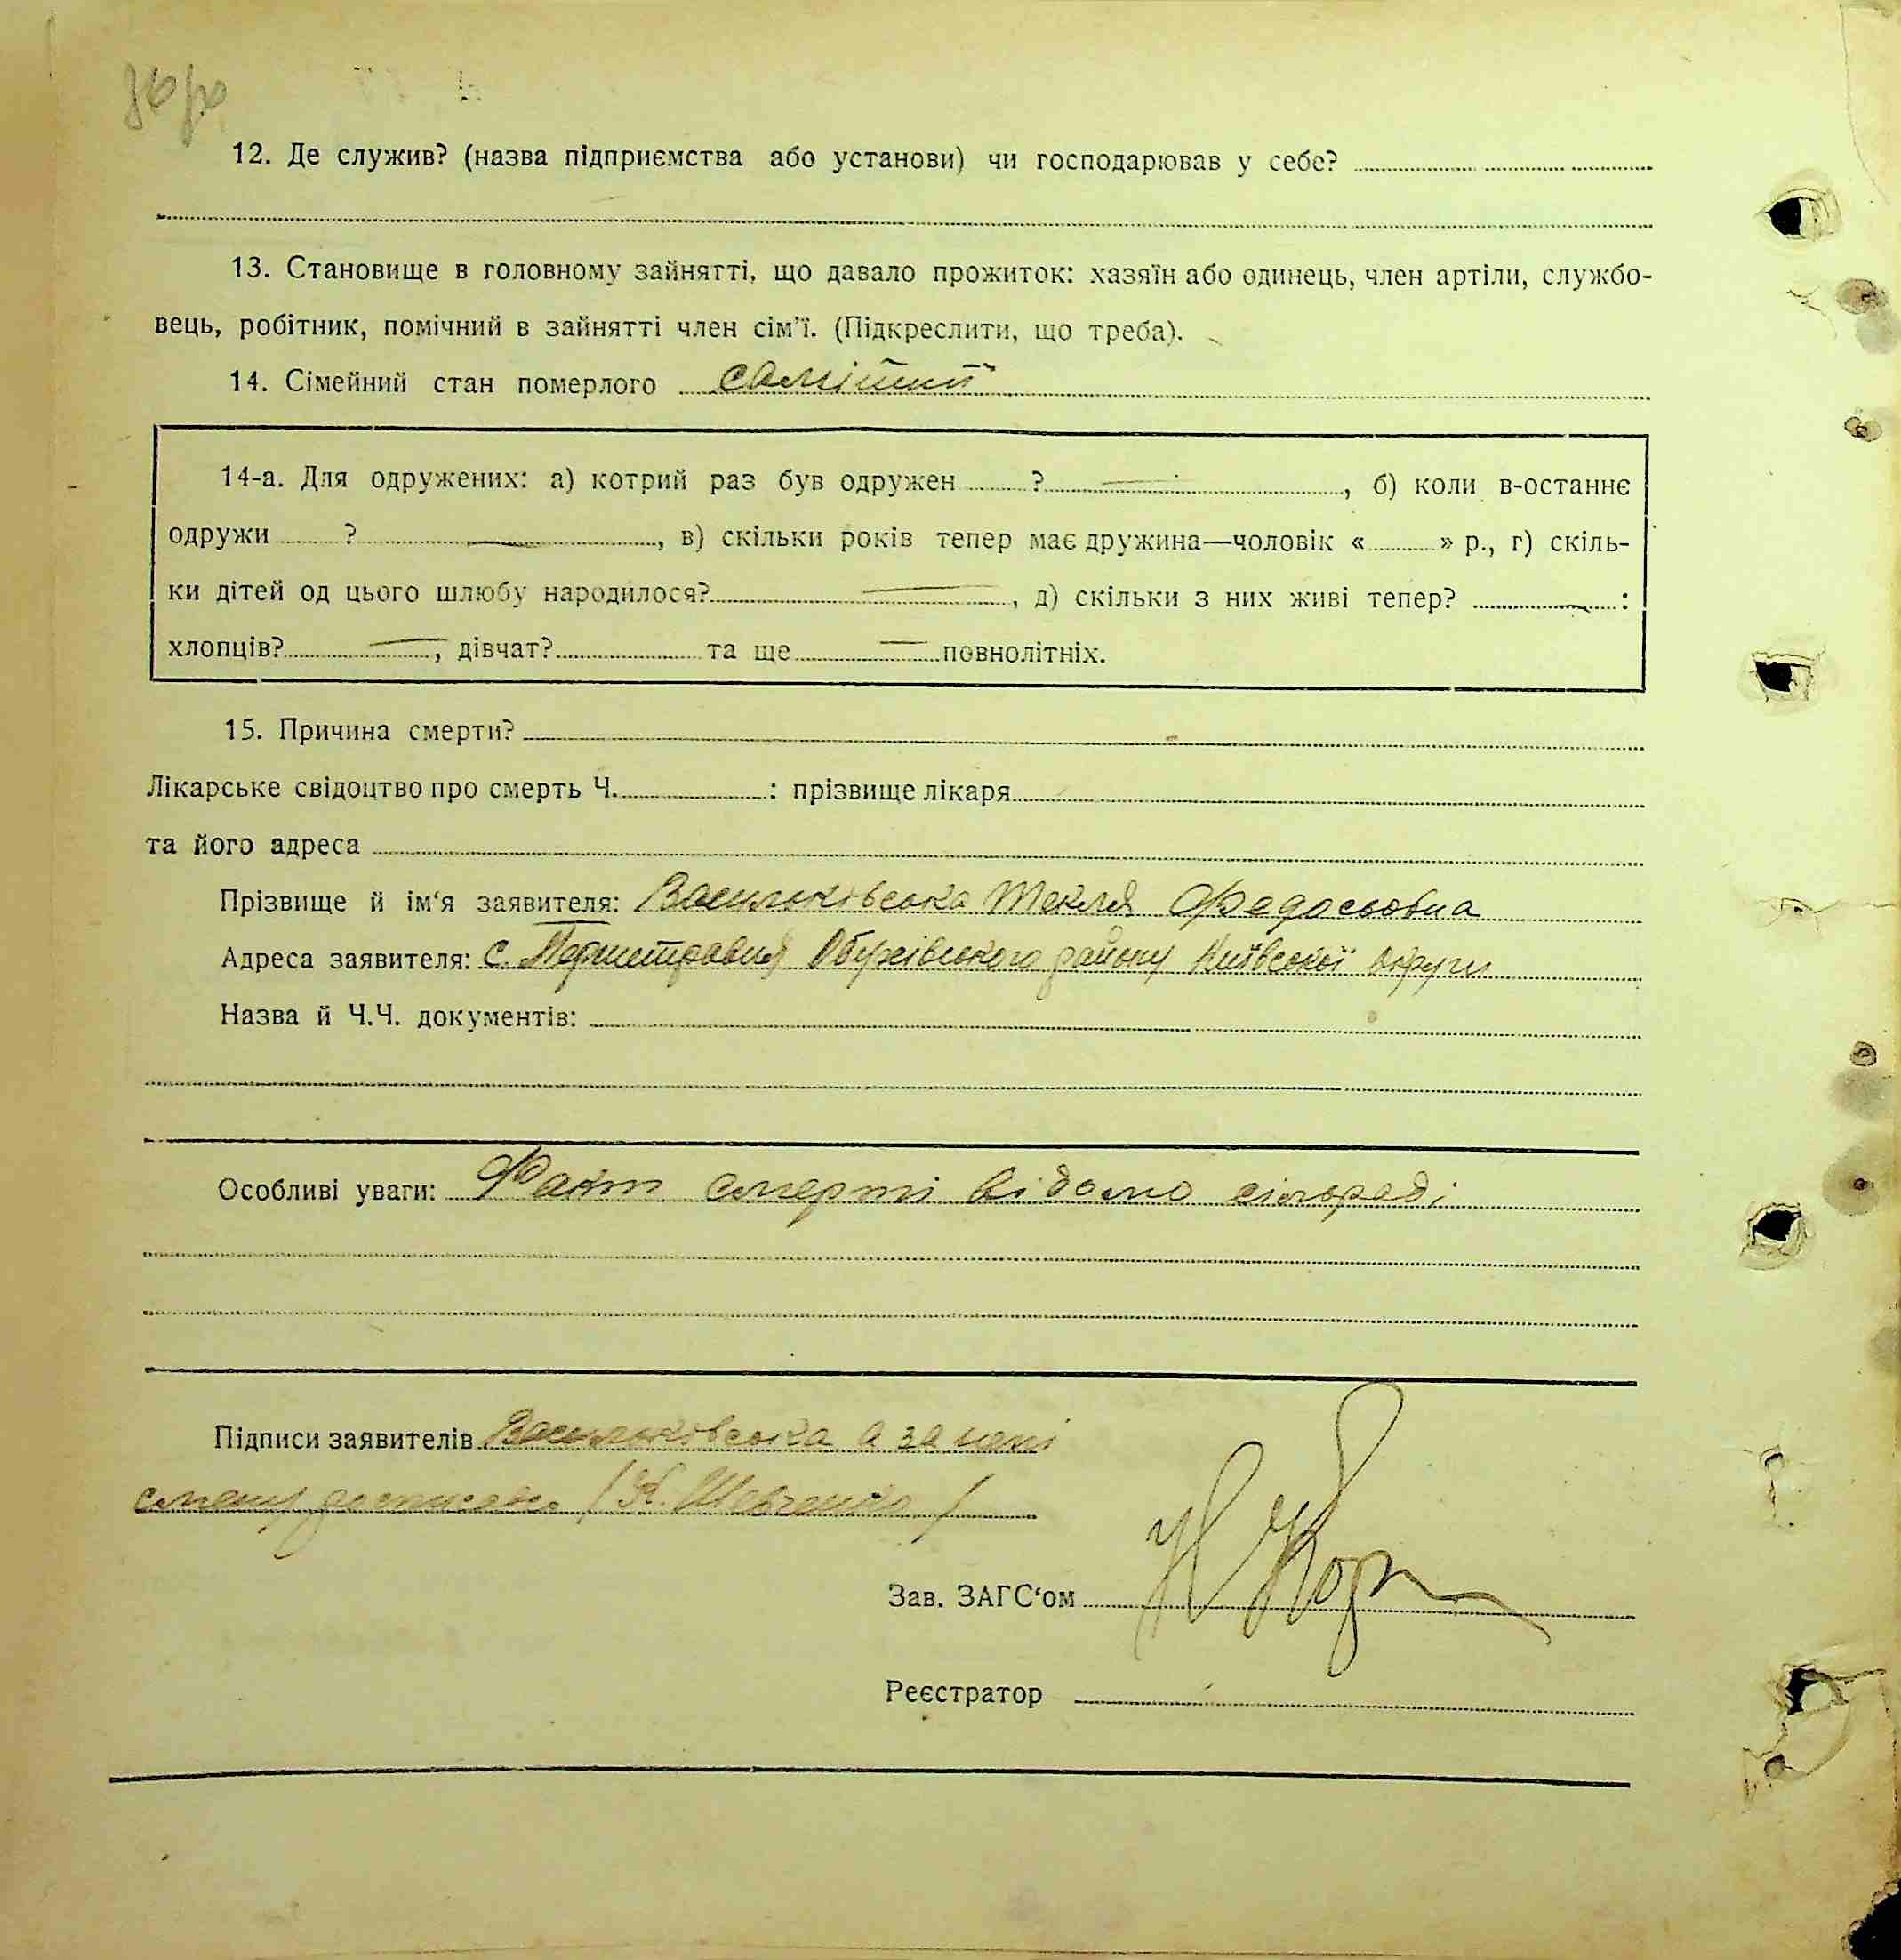 12. Де служив? (назва підприємства або установи) чи господарював у себе?
13. Становище в головному зайнятті, що давало прожиток: хазяїн або одинець, член артіли, службо-
вець, робітник, помічний в зайнятті член сім'ї. (Підкреслити, що треба).
14. Сімейний стан померлого самітний
14-а. Для одружених: а) котрий раз був одружен ? —, б) коли в-останнє
одружи ? —, в) скільки років тепер має дружина—чоловік « » р., г) скіль-
ки дітей од цього шлюбу народилося? —, д) скільки з них живі тепер? — :
хлопців? —, дівчат? та ще — повнолітніх.
15. Причина смерти?
Лікарське свідоцтво про смерть Ч. : прізвище лікаря
та його адреса
Прізвище й ім'я заявителя: Васильківська Текля Федосьовна
Адреса заявителя: с. Обухівського району Київської округи
Назва й Ч.Ч. документів:
Особливі уваги: Факт смерті відомо сільраді
Підписи заявителів Васильківська а за неї
/ К. Шевченко /
Зав. ЗАГС'ом
Реєстратор